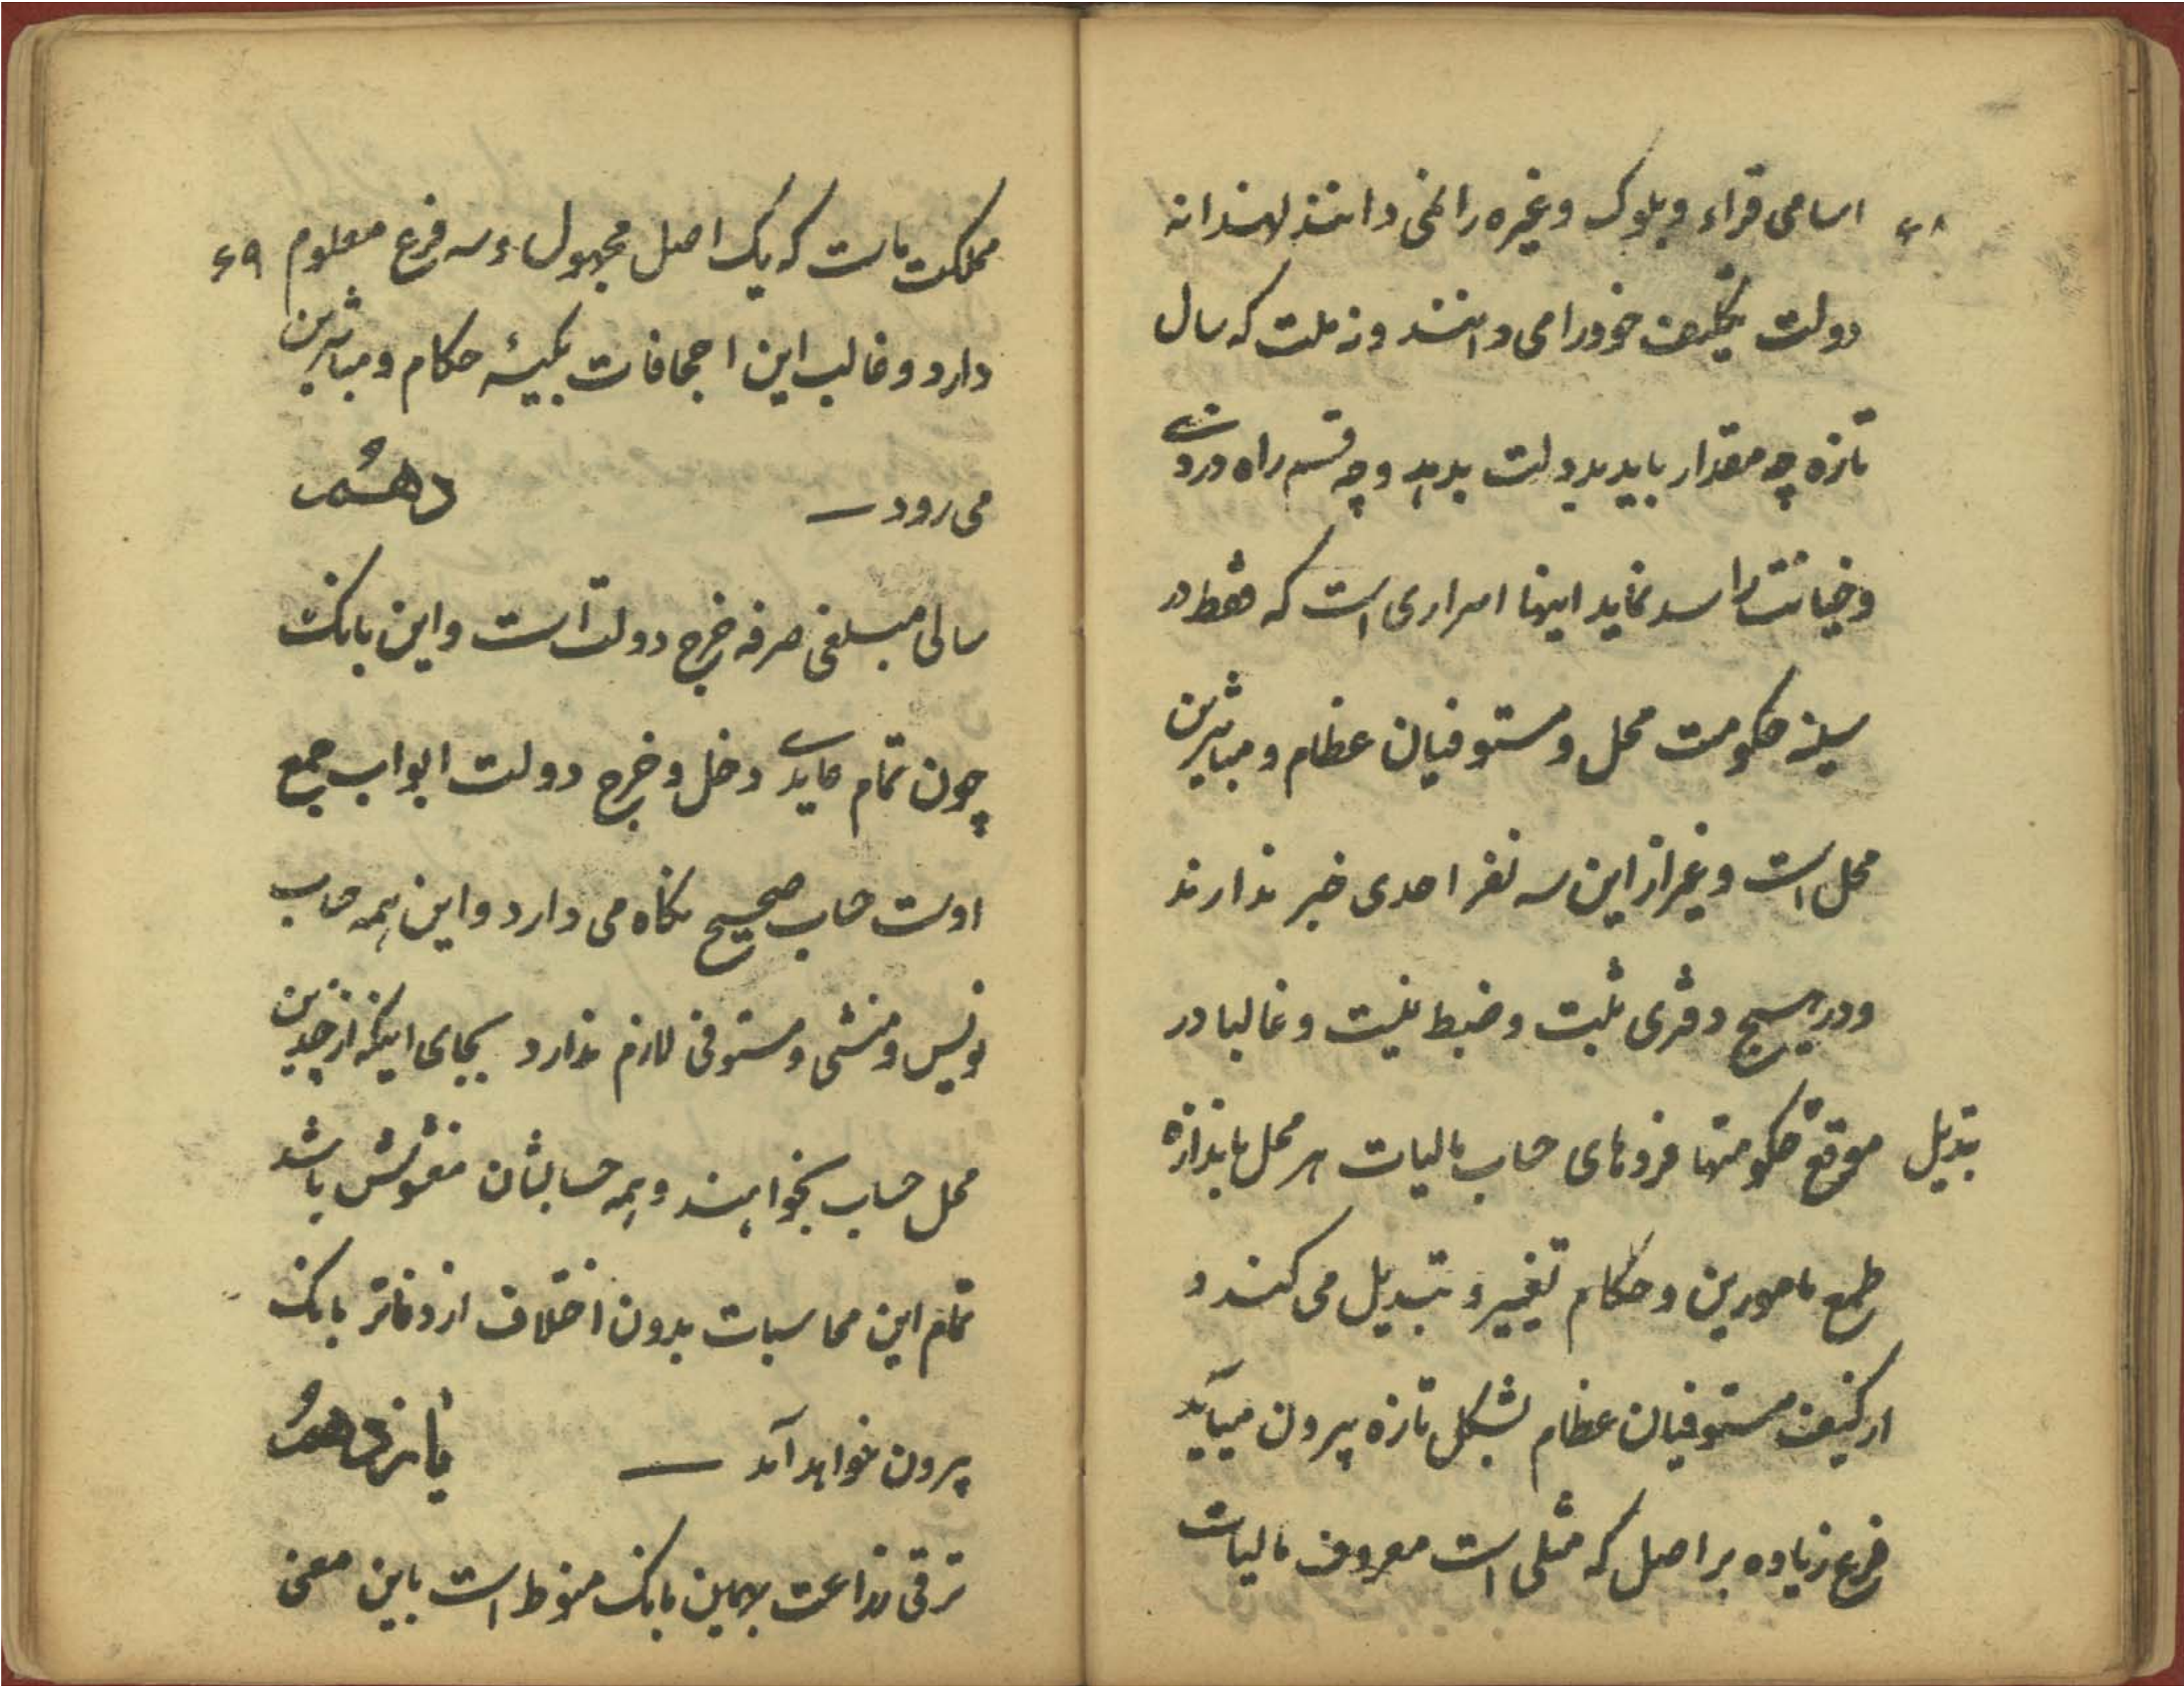 ۶۸
اسامی قراء و بلوک و غیره را نمی دانند لهذا نه
دولت تکلیف خود را می دانند و نه ملت که سال
تازه چه مقدار باید بدولت بدهد و چه قسم راه دزدی
و خیانت را سد نماید اینها اسراری است که فقط در
سینه حکومت محل و مستوفیان عظام و مباشرین
محل است و غیر از این سه نفر احدی خبر ندارند
و در هیچ دفتری ثبت و ضبط نیست و غالبا در
موقع تبدیل حکومتها فردهای حساب مالیات هر محل باندازه
طمع مامورین و حکام تغییر و تبدیل می کنند و
از کیف مستوفیان عظام بشکل تازه بیرون میآید
فرع زیاده بر اصل که مثلی است معروف مالیات
۶۹
مملکت ماست که یک اصل مجهول و سه فرع معلوم
دارد و غالب این اجحافات بکیسهٔ حکام و مباشرین
می رود — دهم
سالی مبلغی صرفه خرج دولت است و این بانک
چون تمام عایدی دخل و خرج دولت ابواب جمع
اوست حساب صحیح نگاه می دارد و این همه حساب
نویس و منشی و مستوفی لازم ندارد بجای اینکه از چندین
محل حساب بخواهند و همه حسابشان مغشوش باشد
تمام این محاسبات بدون اختلاف از دفاتر بانک
بیرون خواهد آمد — یازدهم
ترقی زراعت بهمین بانک منوط است باین معنی